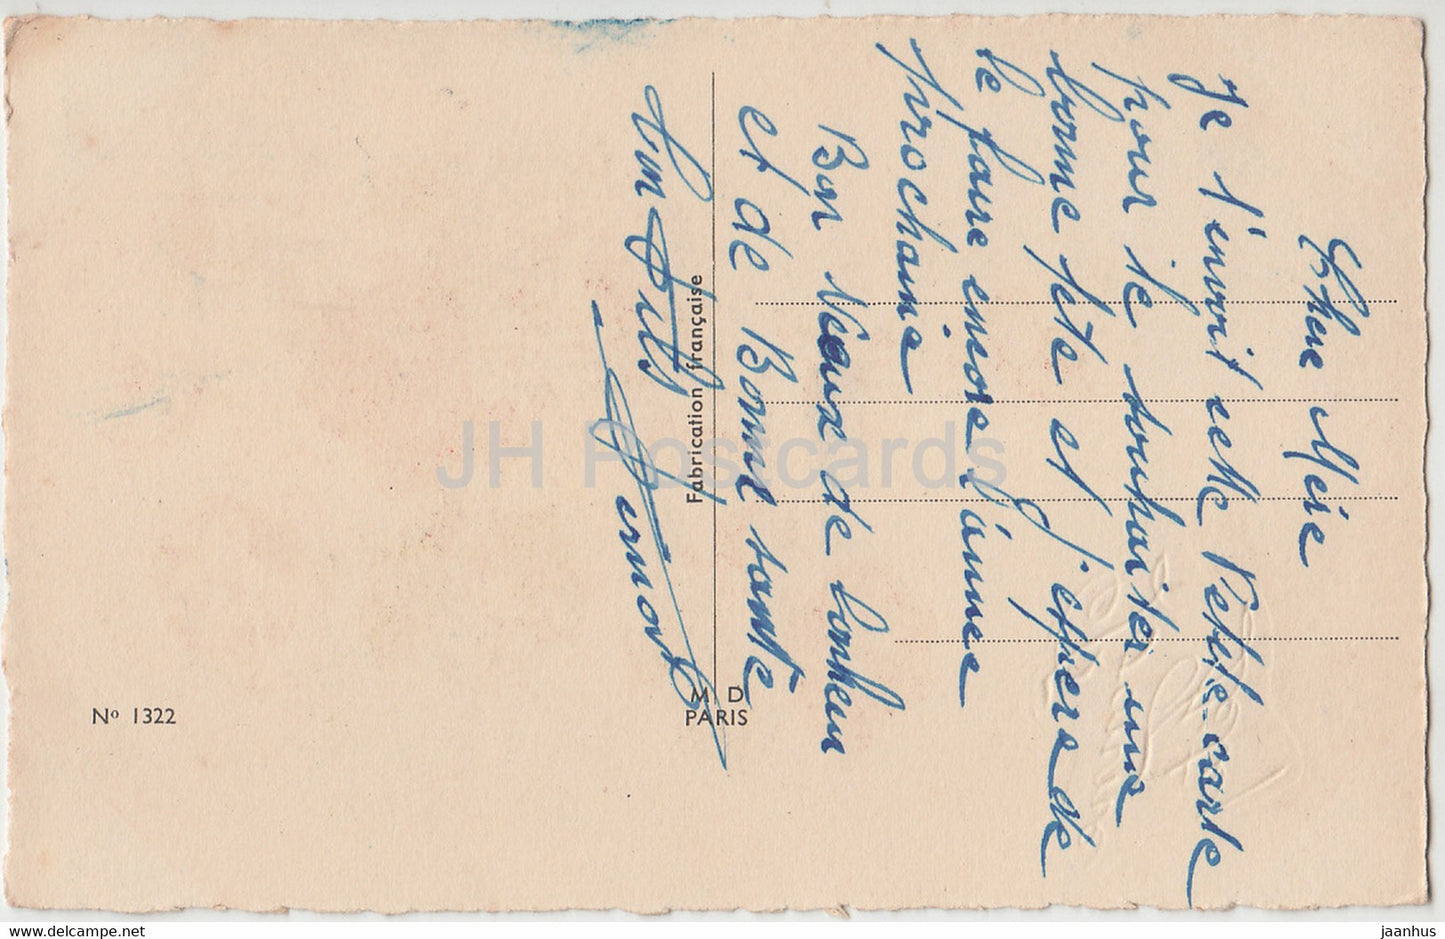 Chere Mère
Je t'envoit cette Petite-carte
pour te souhaiter une
bonne fête et j'espere de
te faire encore l'annee
prochaine
Bon Veaux de bonheur
et de Bonne santé
Ton Fils
Fabrication française
M D
PARIS
Nº 1322
JH Postcards
jaanhus